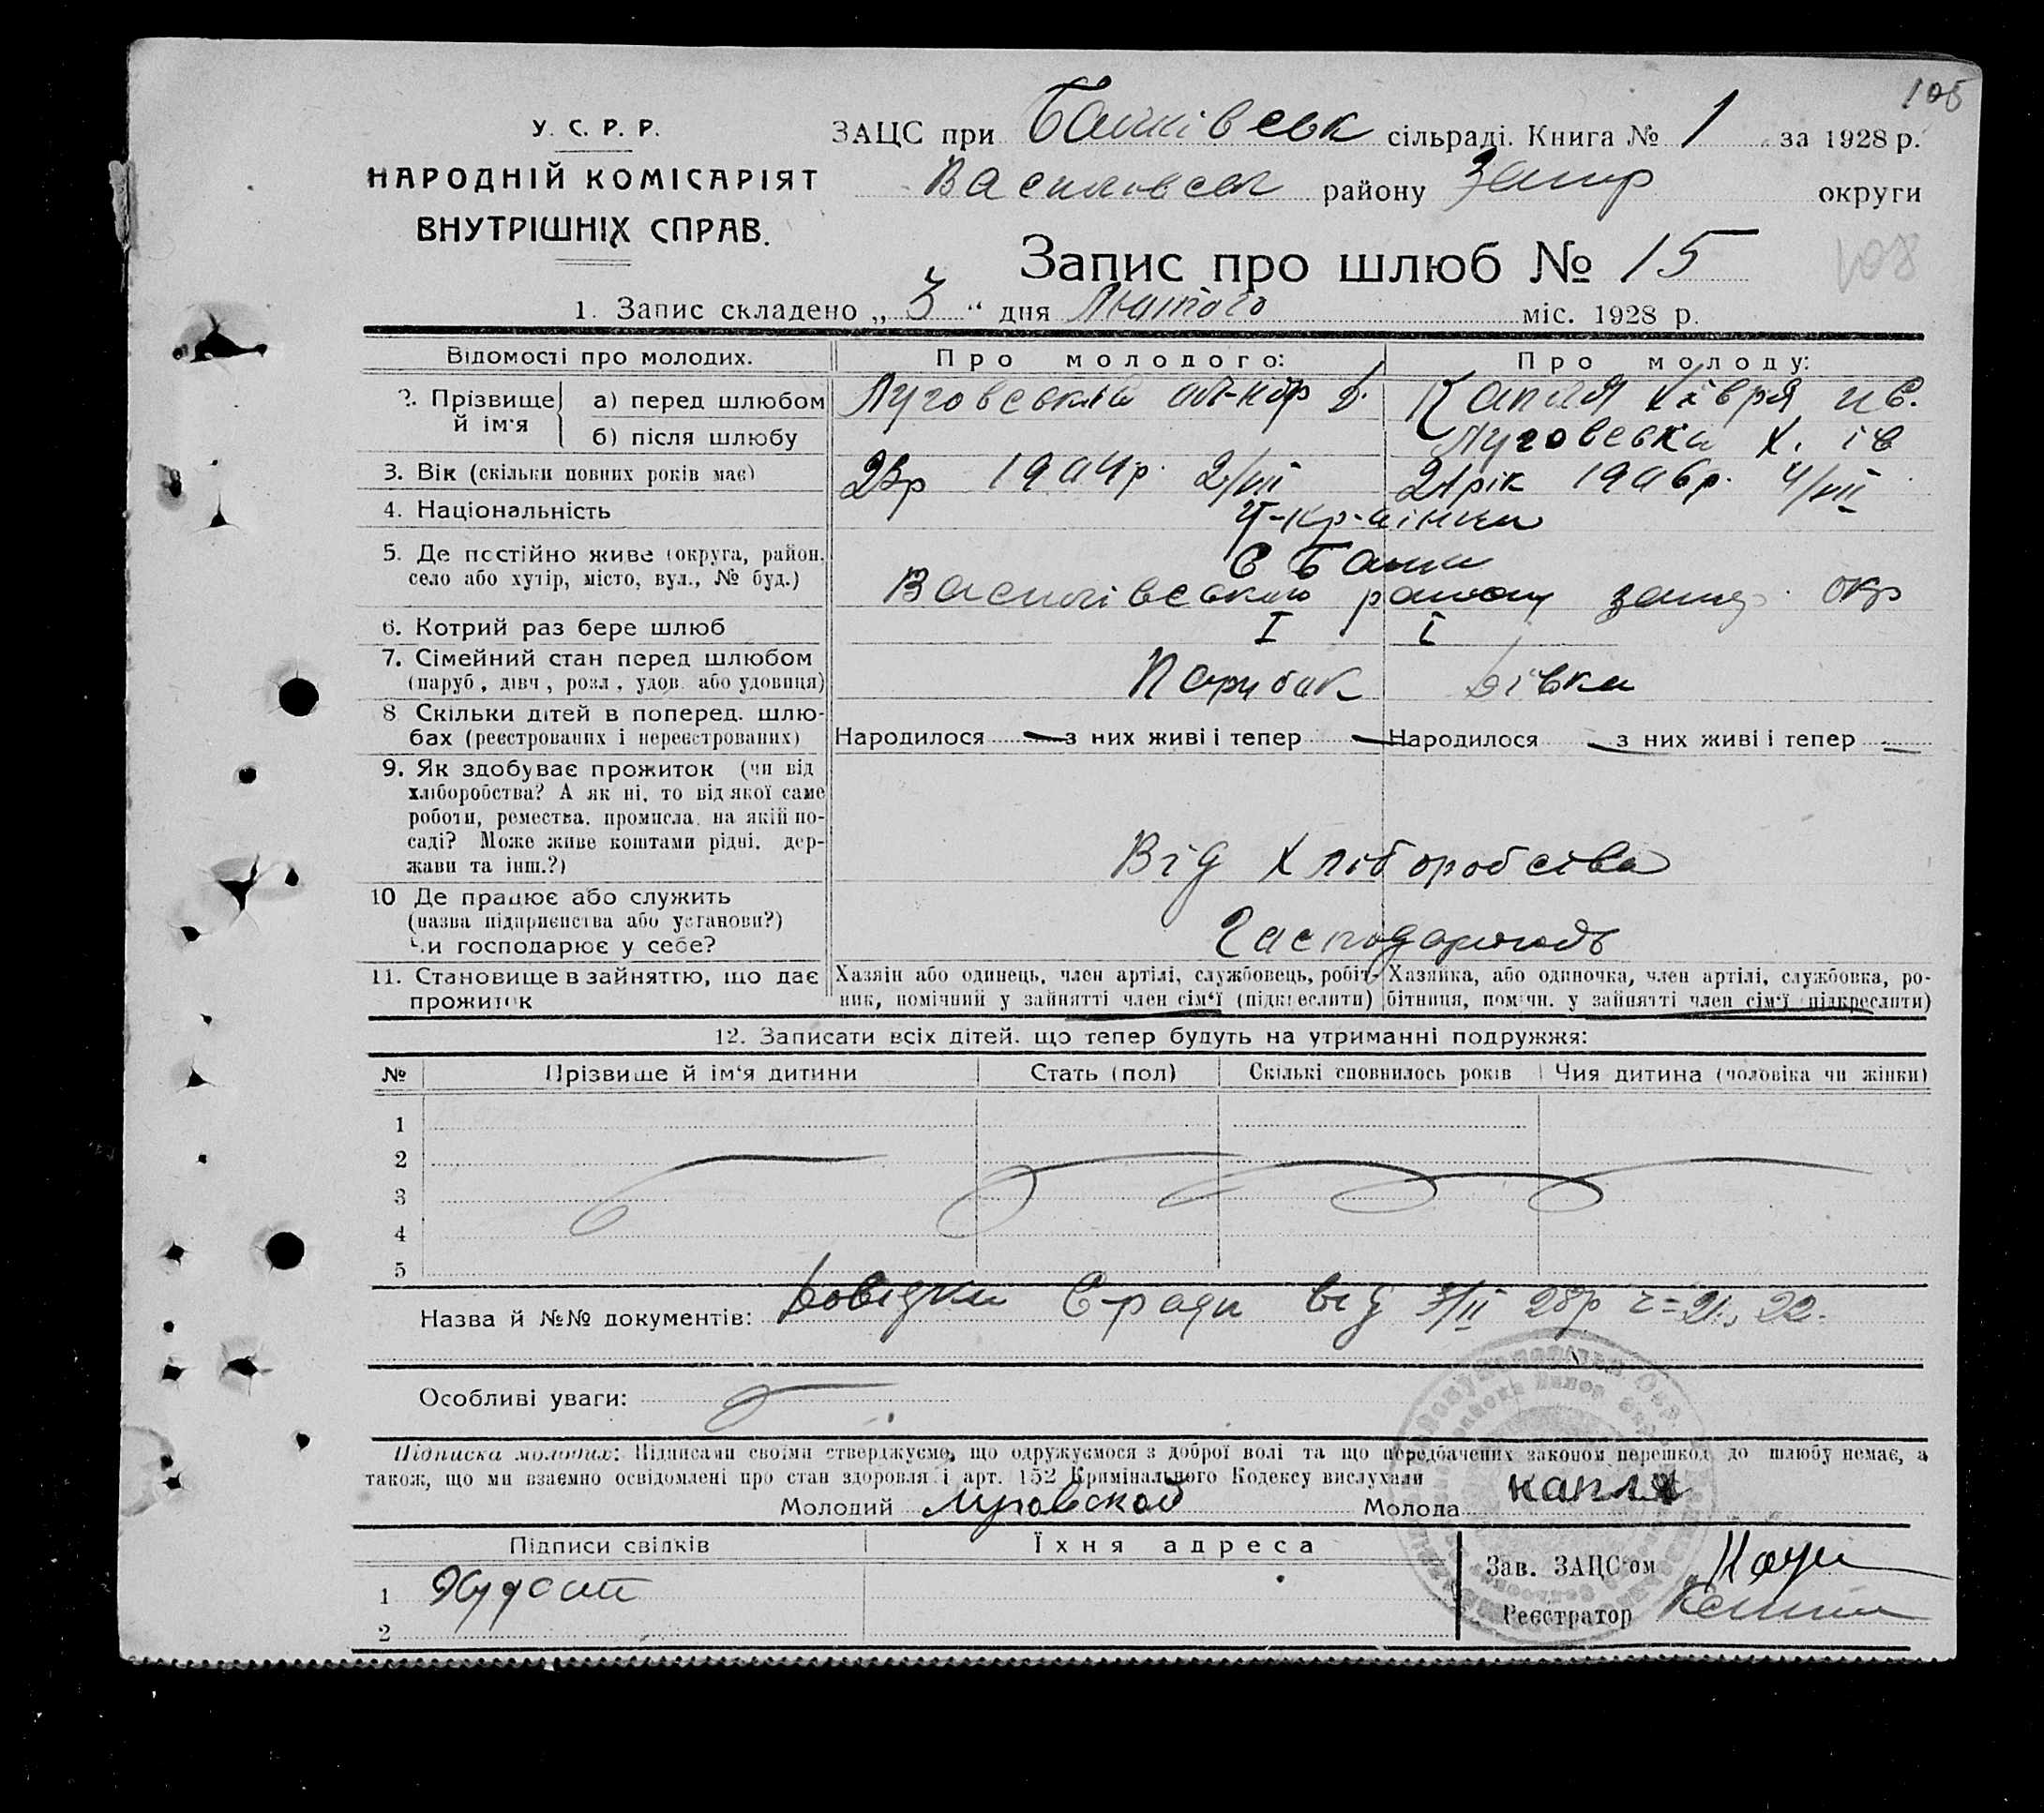 105
У. С. Р. Р.
НАРОДНІЙ КОМІСАРІЯТ
ВНУТРІШНІХ СПРАВ.
ЗАЦС при сільраді. Книга № 1 за 1928 р.
Василівськ району Запор округи
Запис про шлюб № 15
108
1. Запис складено „ 3 “ дня Лютого міс. 1928 р.
Відомості про молодих. Про молодого: Про молоду:
2. Прізвище й ім'я а) перед шлюбом Луговський Капля Хівря
б) після шлюбу Луговська Х. ів
3. Вік (скільки повних років має) 23р 1904р. 2/VII 21рік 1906р. 4/VII
4. Національність У-кр-аінци
5. Де постійно живе (округа, район,
село або хутір, місто, вул., № буд.) Василівського району запор. окр
6. Котрий раз бере шлюб I I
7. Сімейний стан перед шлюбом
(паруб., дівч., розл., удов. або удовиця) Парубак дівка
8 Скільки дітей в поперед. шлю-
бах (реєстрованих і нереєстрованих) Народилося — з них живі і тепер — Народилося — з них живі і тепер —
9. Як здобуває прожиток (чи від
хліборобства? А як ні, то від якої саме
роботи, ремества, промисла, на якій по-
саді? Може живе коштами рідні, дер-
жави та інш.?) Від хліборобства
10 Де працює або служить
(назва підприємства або установи?)
Чи господарює у себе?
11. Становище в зайняттю, що дає
прожиток
Хазяін або одинець, член артілі, службовець, робіт-
ник, помічний у зайнятті член сім'ї (підкреслити)
Хазяйка, або одиночка, член артілі, службовка, ро-
бітниця, помічн. у зайнятті член сім'ї (підкреслити)
12. Записати всіх дітей, що тепер будуть на утриманні подружжя:
№ Прізвище й ім'я дитини Стать (пол) Скількі сповнилось років Чия дитина (чоловіка чи жінки)
1
2
3
4
5
Назва й №№ документів: Довідки С-ради від 3/II 28р ч=21, 22.
Особливі уваги:
Підписка молодих: Підписами своїми стверджуємо, що одружуємося з доброї волі та що передбачених законом перешкод до шлюбу немає, а
також, що ми взаємно освідомлені про стан здоровля і арт. 152 Кримінального Кодексу вислухали
Молодий Молода капля
Підписи свідків Їхня адреса
Зав. ЗАЦС'ом
1
Реєстратор
2